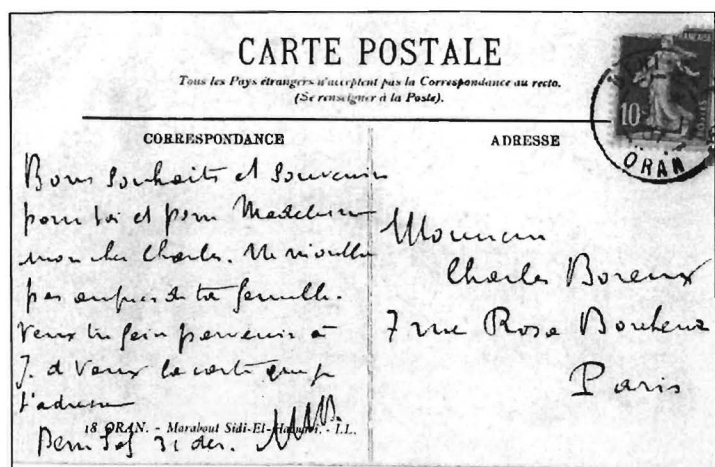 CARTE POSTALE
Tous les Pays étrangers n'acceptent pas la Correspondance au recto.
(Se renseigner à la Poste).
CORRESPONDANCE
ADRESSE
Bons souhaits et souvenirs
pour toi et pour Madeleine
mon cher Charles. Ne m'oublie
pas auprès de ta famille.
Veux tu faire parvenir à
J. de Vaux la carte que je
t'adresse
18 ORAN. - Marabout Sidi-El- - LL.
Beni Saf 31 déc.
Monsieur
Charles Boreux
7 rue Rosa Bonheur
Paris
10
ORAN